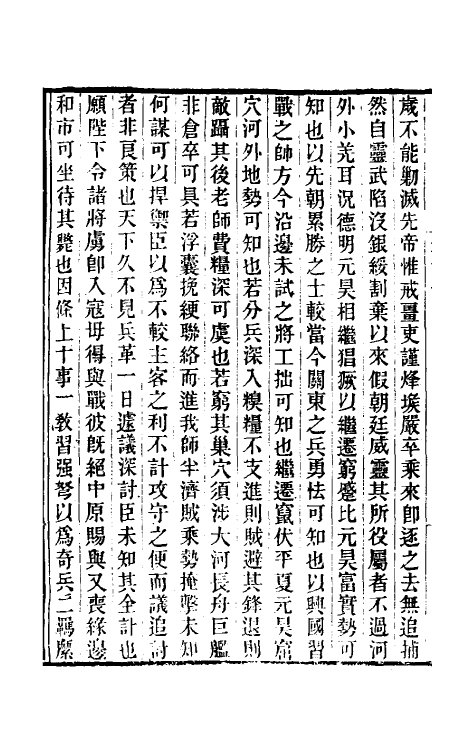 歲不能勦滅先帝惟戒疆吏謹烽堠嚴卒乘來卽逐之去無追捕
然自靈武陷沒銀綏割棄以來假朝廷威靈其所役屬者不過河
外小羌耳况德明元昊相繼猖獗以繼遷窮蹙比元昊富實勢可
知也以先朝累勝之士較當今關東之兵勇怯可知也以興國習
戰之帥方今沿邊未試之將工拙可知也繼遷竄伏平夏元昊窟
穴河外地勢可知也若分兵深入糗糧不支進則賊避其鋒退則
敵躡其後老師費糧深可虞也若窮其巢穴須涉大河長舟巨艦
非倉卒可具若浮囊挽綆聯絡而進我師半濟賊乘勢掩擊未知
何謀可以捍禦臣以爲不較主客之利不計攻守之便而議追討
者非良策也天下久不見兵革一日遽議深討臣未知其全計也
願陛下令諸將虜卽入寇毋得與戰彼旣絕中原賜與又喪緣邊
和市可坐待其斃也因條上十事一敎習强弩以爲奇兵二羈縻